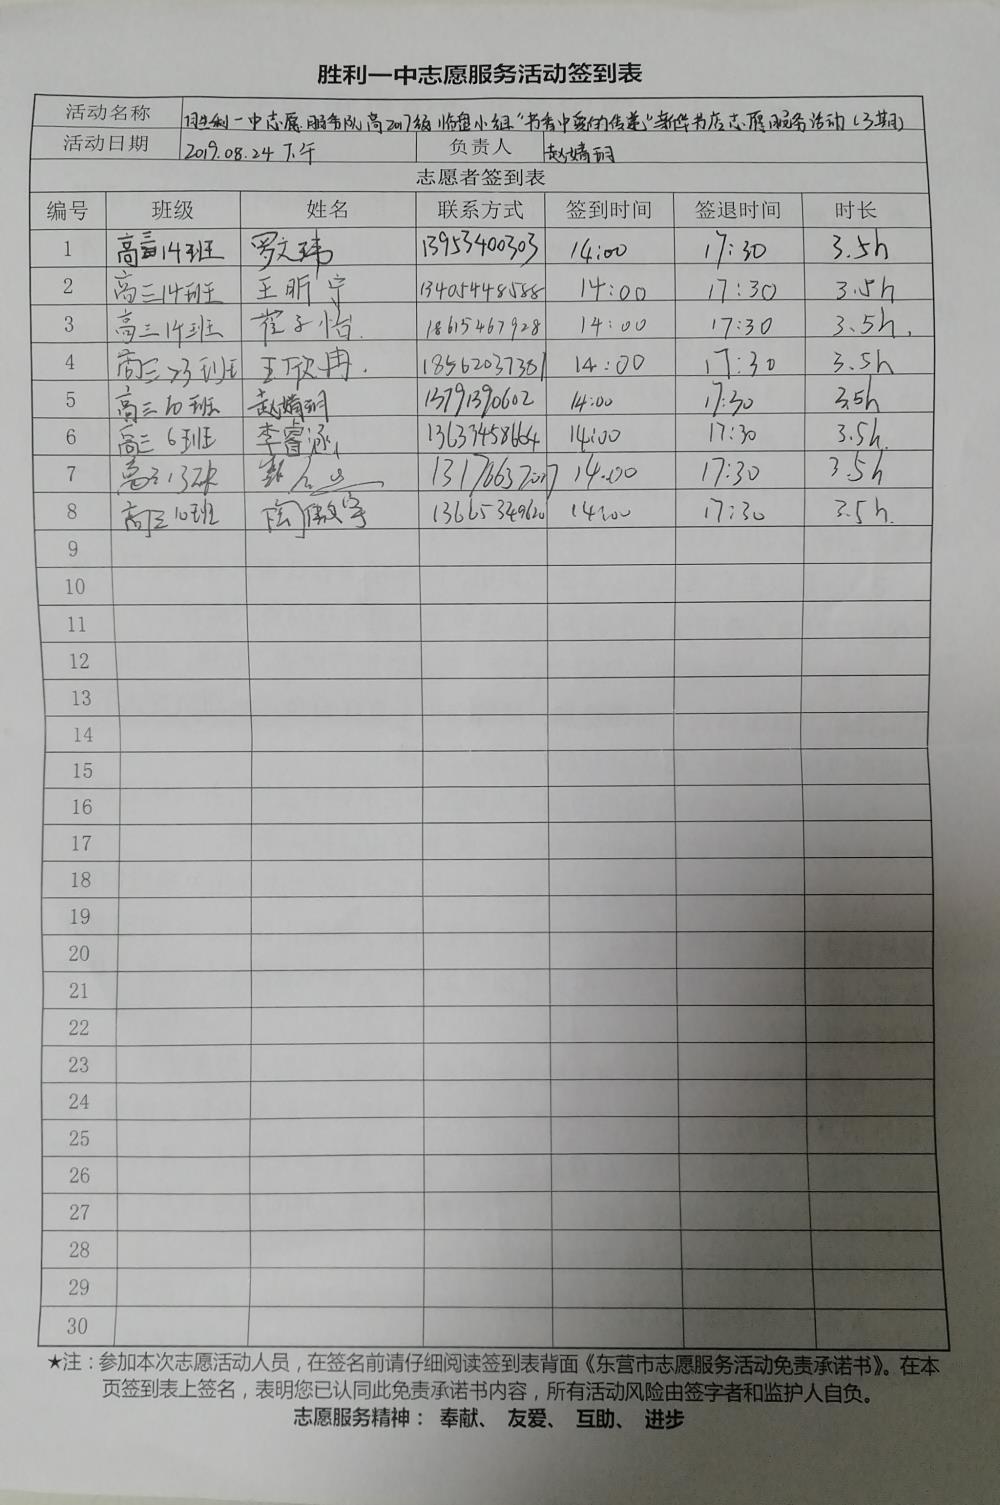 胜利一中志愿服务活动签到表
活动名称 胜利一中志愿服务队高2017级临盘小组"书香中爱的传递"新华书店志愿服务活动(3期)
活动日期 2019.08.24 下午 负责人 赵婧羽
志愿者签到表
编号 班级 姓名 联系方式 签到时间 签退时间 时长
1 高三14班 罗文玮 13953400303 14:00 17:30 3.5h
2 高三14班 王昕宁 13405448588 14:00 17:30 3.5h
3 高三14班 崔子怡. 18615467928 14:00 17:30 3.5h.
4 高三23班 王欣冉. 18562037381 14:00 17:30 3.5h
5 高三10班 赵婧羽 13791390602 14:00 17:30 3.5h
6 高三6班 李睿涵 13633458664 14:00 17:30 3.5h.
7 高三13班 14:00 17:30 3.5h
8 高三10班 陶傲宇 13665349620 14:00 17:30 3.5h.
9
10
11
12
13
14
15
16
17
18
19
20
21
22
23
24
25
26
27
28
29
30
★注：参加本次志愿活动人员，在签名前请仔细阅读签到表背面《东营市志愿服务活动免责承诺书》。在本
页签到表上签名，表明您已认同此免责承诺书内容，所有活动风险由签字者和监护人自负。
志愿服务精神： 奉献、 友爱、 互助、 进步